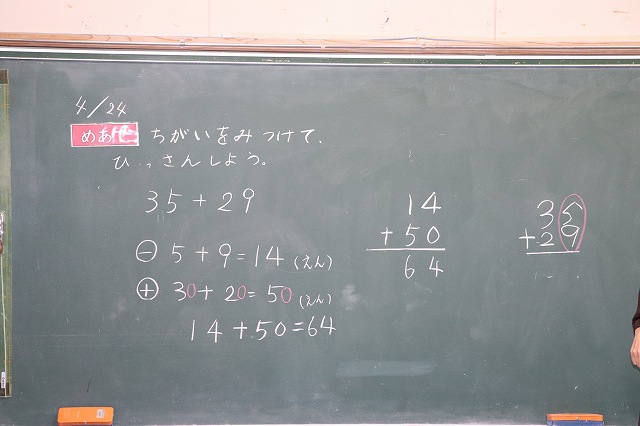 4/24
めあて ちがいをみつけて、
ひっさんしよう。
35+29
㊀ 5+9=14(えん)
㊉ 30+20=50(えん)
14+50=64
14
+50
64
35
+29